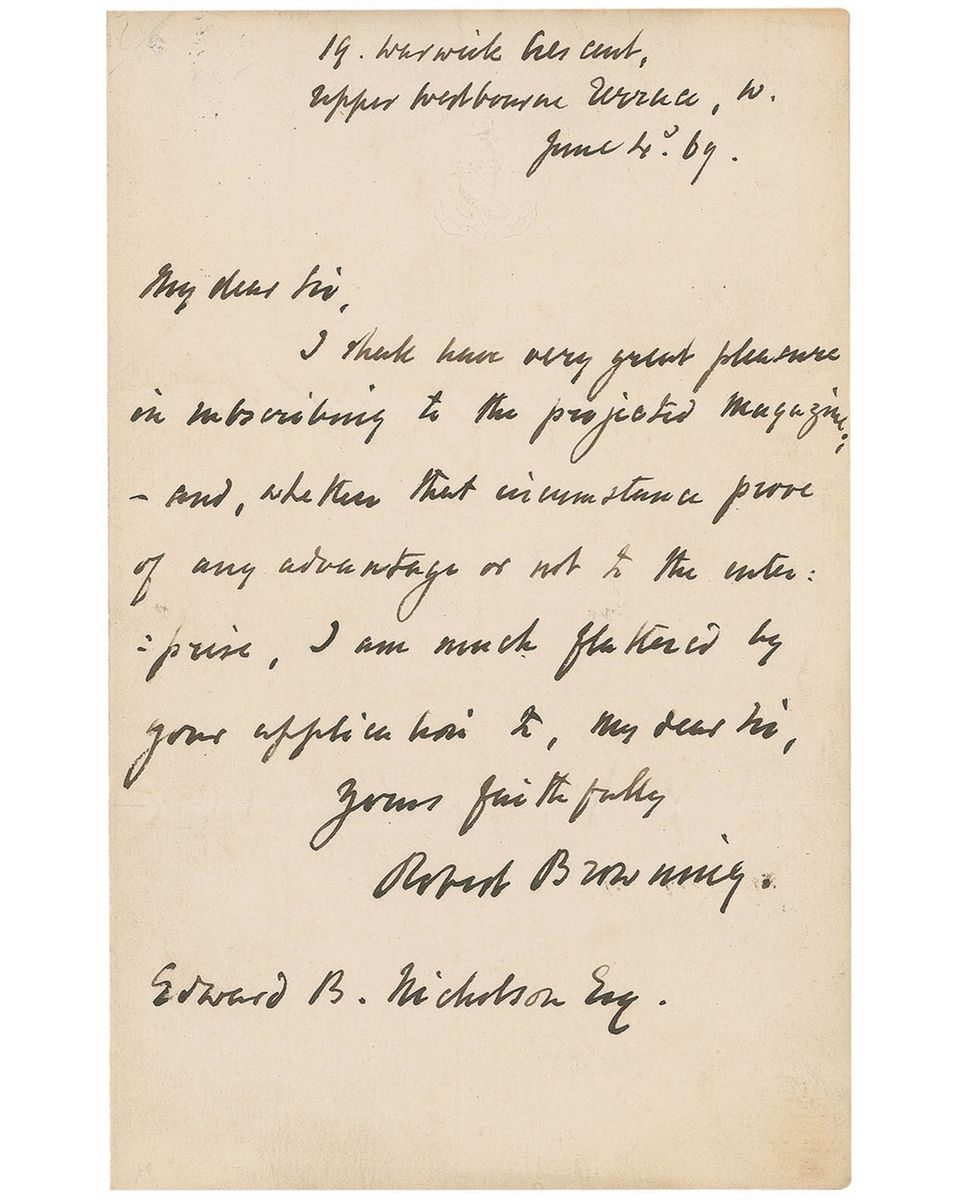 19. Warwick Crescent,
Upper Westbourne Terrace, W.
June 4. '69.
My dear Sir,
I shall have very great pleasure
in subscribing to the projected Magazine;
- and, whether that circumstance prove
of any advantage or not to the enter:
:prise, I am much flattered by
your application to, my dear Sir,
Yours faithfully
Robert Browning.
Edward B. Nicholson Esq.